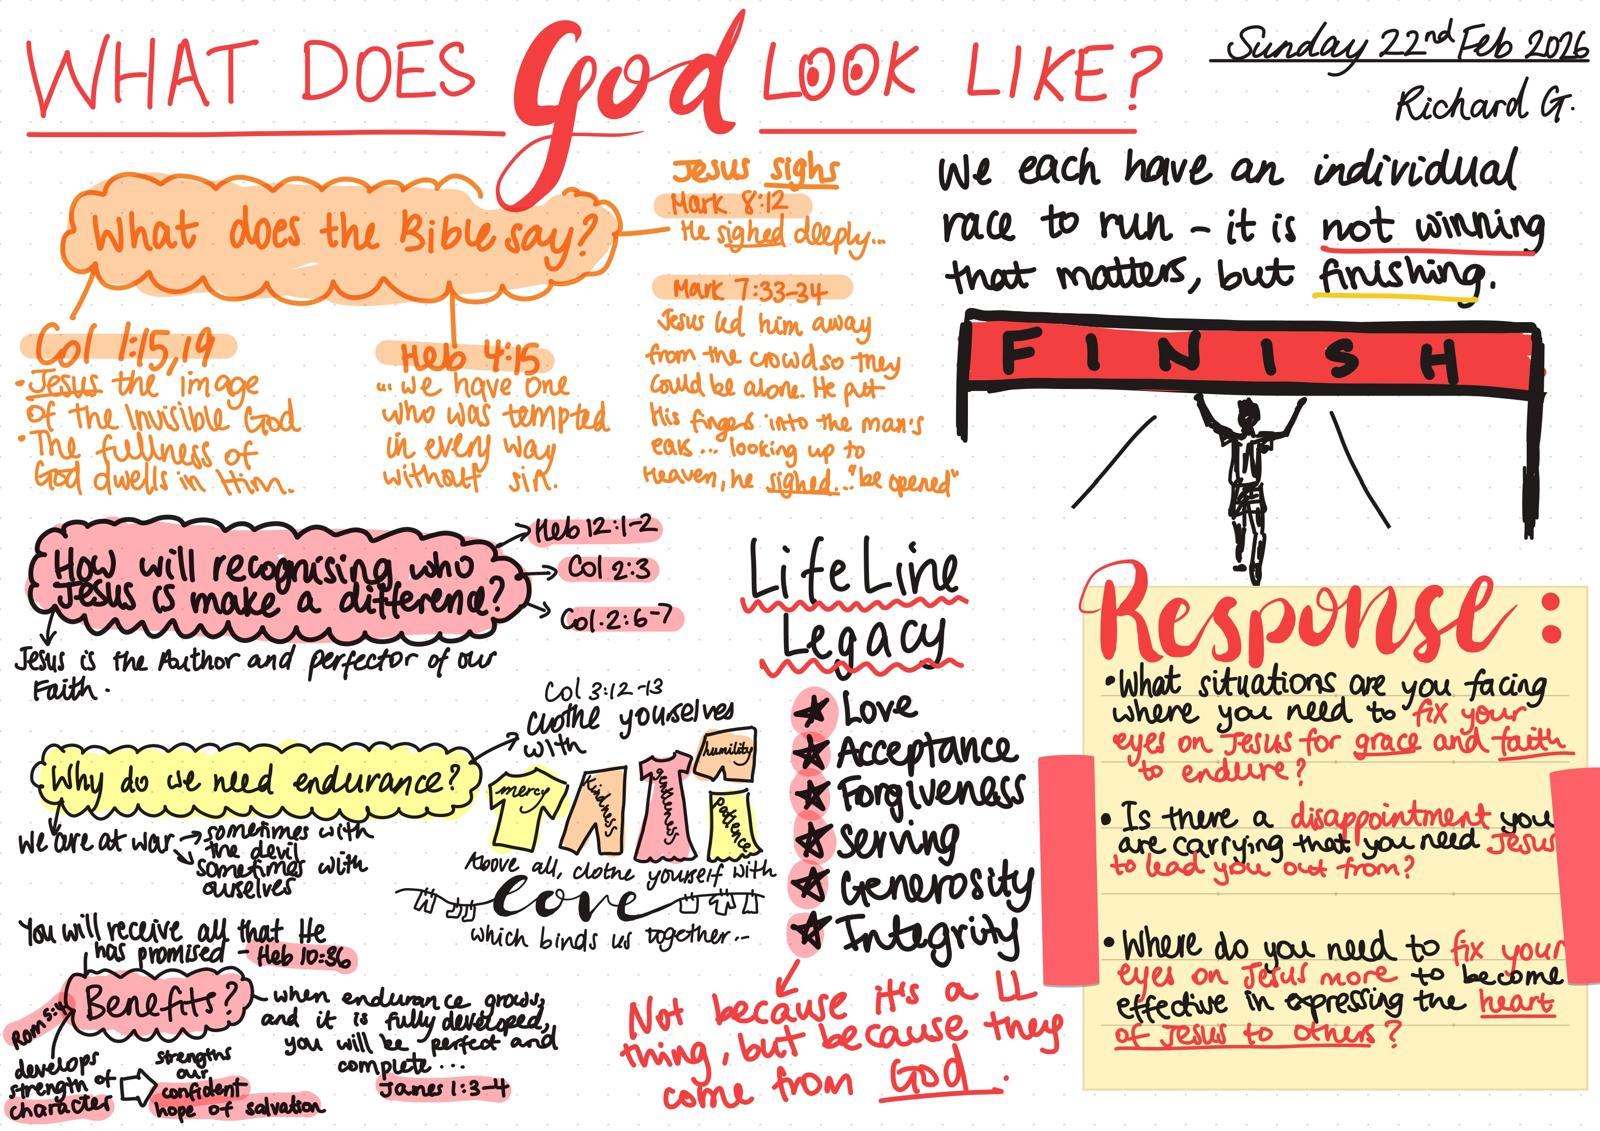 WHAT DOES God LOOK LIKE?
Sunday 22nd Feb 2026
Richard G.
What does the Bible say?
Col 1:15,19
• Jesus the image
of the Invisible God
• The fullness of
God dwells in Him.
Heb 4:15
... we have one
who was tempted
in every way
without sin.
Jesus sighs
Mark 8:12
He sighed deeply...
Mark 7:33-34
Jesus led him away
from the crowd so they
could be alone. He put
His fingers into the man's
ears... looking up to
Heaven, he sighed... "be opened"
We each have an individual
race to run - it is not winning
that matters, but finishing.
FINISH
How will recognising who
Jesus is make a difference?
Heb 12:1-2
Col 2:3
Col. 2:6-7
Jesus is the Author and perfector of our
Faith.
Why do we need endurance?
We are at war
sometimes with
the devil
sometimes with
ourselves
Col 3:12-13
clothe yourselves
with
mercy
kindness
gentleness
humility
patience
Above all, clothe yourself with
love
which binds us together...
You will receive all that He
has promised - Heb 10:36
Benefits?
Rom 5:4
develops
strength of
character
strengths
our
confident
hope of salvation
when endurance grows,
and it is fully developed,
you will be perfect and
complete...
James 1:3-4
LifeLine
Legacy
Love
Acceptance
Forgiveness
Serving
Generosity
Integrity
Not because it's a LL
thing, but because they
come from God.
Response:
• What situations are you facing
where you need to fix your
eyes on Jesus for grace and faith
to endure?
• Is there a disappointment you
are carrying that you need Jesus
to lead you out from?
• Where do you need to fix your
eyes on Jesus more to become
effective in expressing the heart
of Jesus to others?